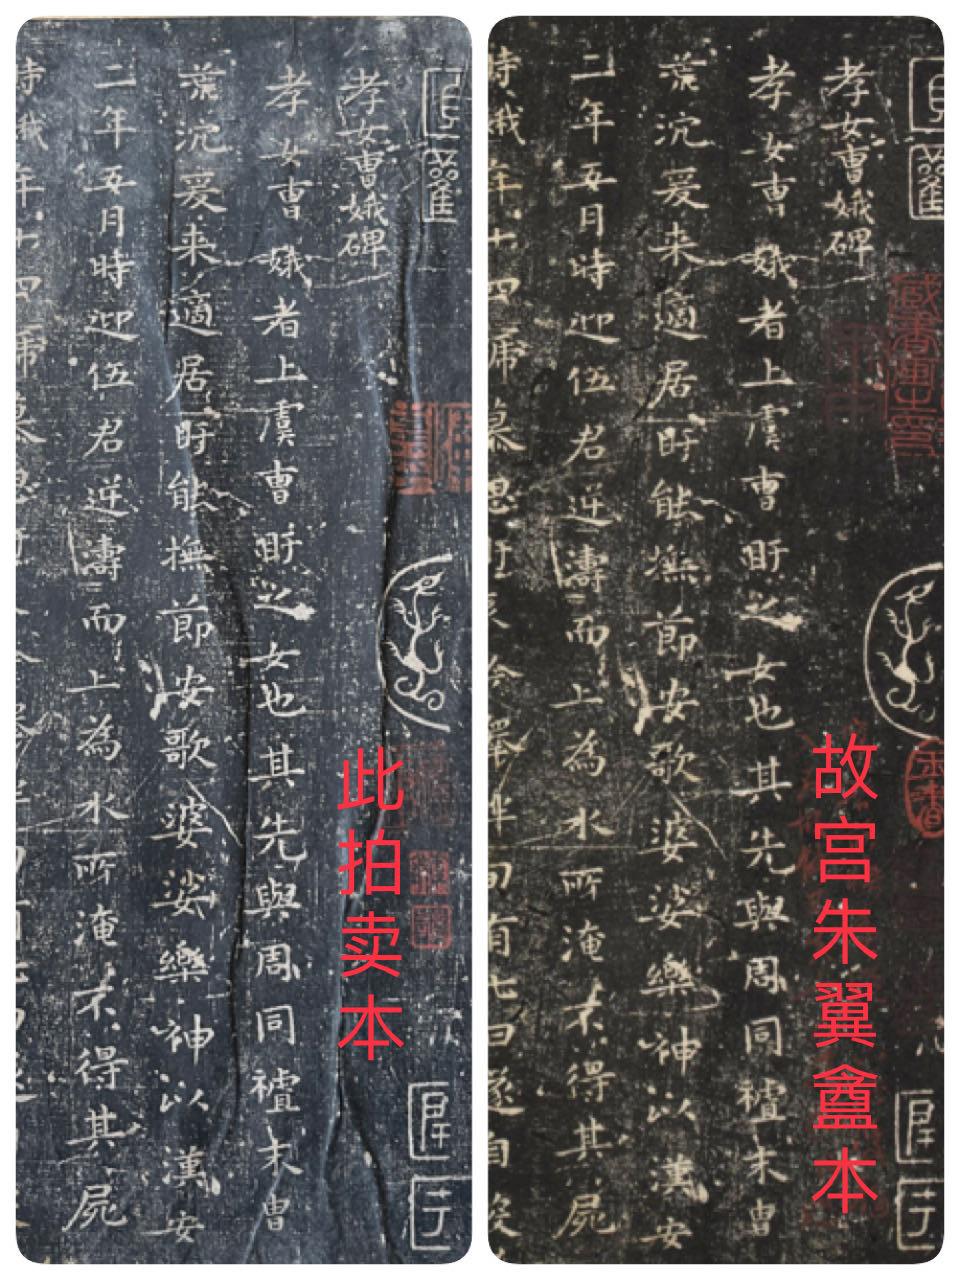 孝女曹娥碑
孝女曹娥者上虞曹盱之女也其先與周同末胄
葉沉爰来適居盱能撫節安歌婆娑樂神以漢安
二年五月時迎伍君逆濤而上為水所淹不得其屍
時娥年十四
此拍卖本
孝女曹娥碑
孝女曹娥者上虞曹盱之女也其先與周同末胄
葉沉爰来適居盱能撫節安歌婆娑樂神以漢安
二年五月時迎伍君逆濤而上為水所淹不得其屍
時娥年十四號慕思盱哀吟澤畔旬有七日遂自投
故宫朱翼盦本